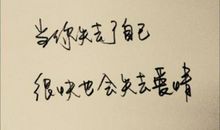 当你失去了自己
很快也会失去爱情